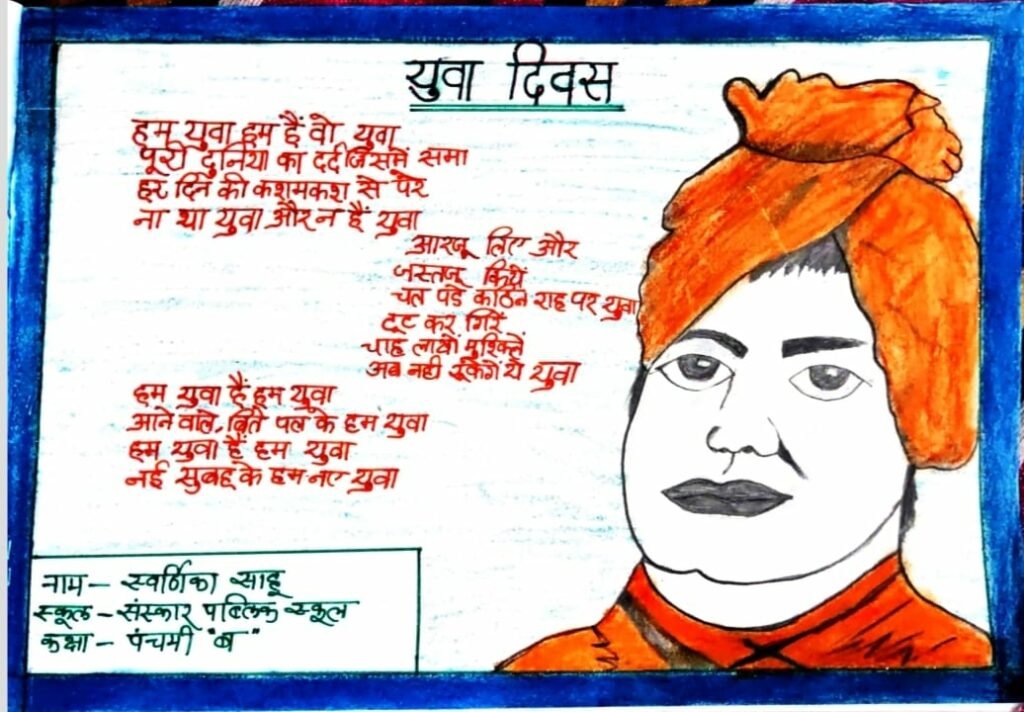 युवा दिवस
हम युवा हम हैं वो युवा
पूरी दुनिया का दर्द जिसमें समा
हर दिन की कशमकश से परे
ना था युवा और न है युवा
आरजू लिए और
जस्तजू किये
चल पडे कठिन राह पर युवा
टूट कर गिरें
चाहे लाखों मुश्किलें
अब नही रुकेगें ये युवा
हम युवा हैं हम युवा
आने वाले, बिते पल के हम युवा
हम युवा हैं हम युवा
नई सुबह के हम नए युवा
नाम - स्वर्णिका साहू
स्कूल - संस्कार पब्लिक स्कूल
कक्षा - पंचमी "ब"